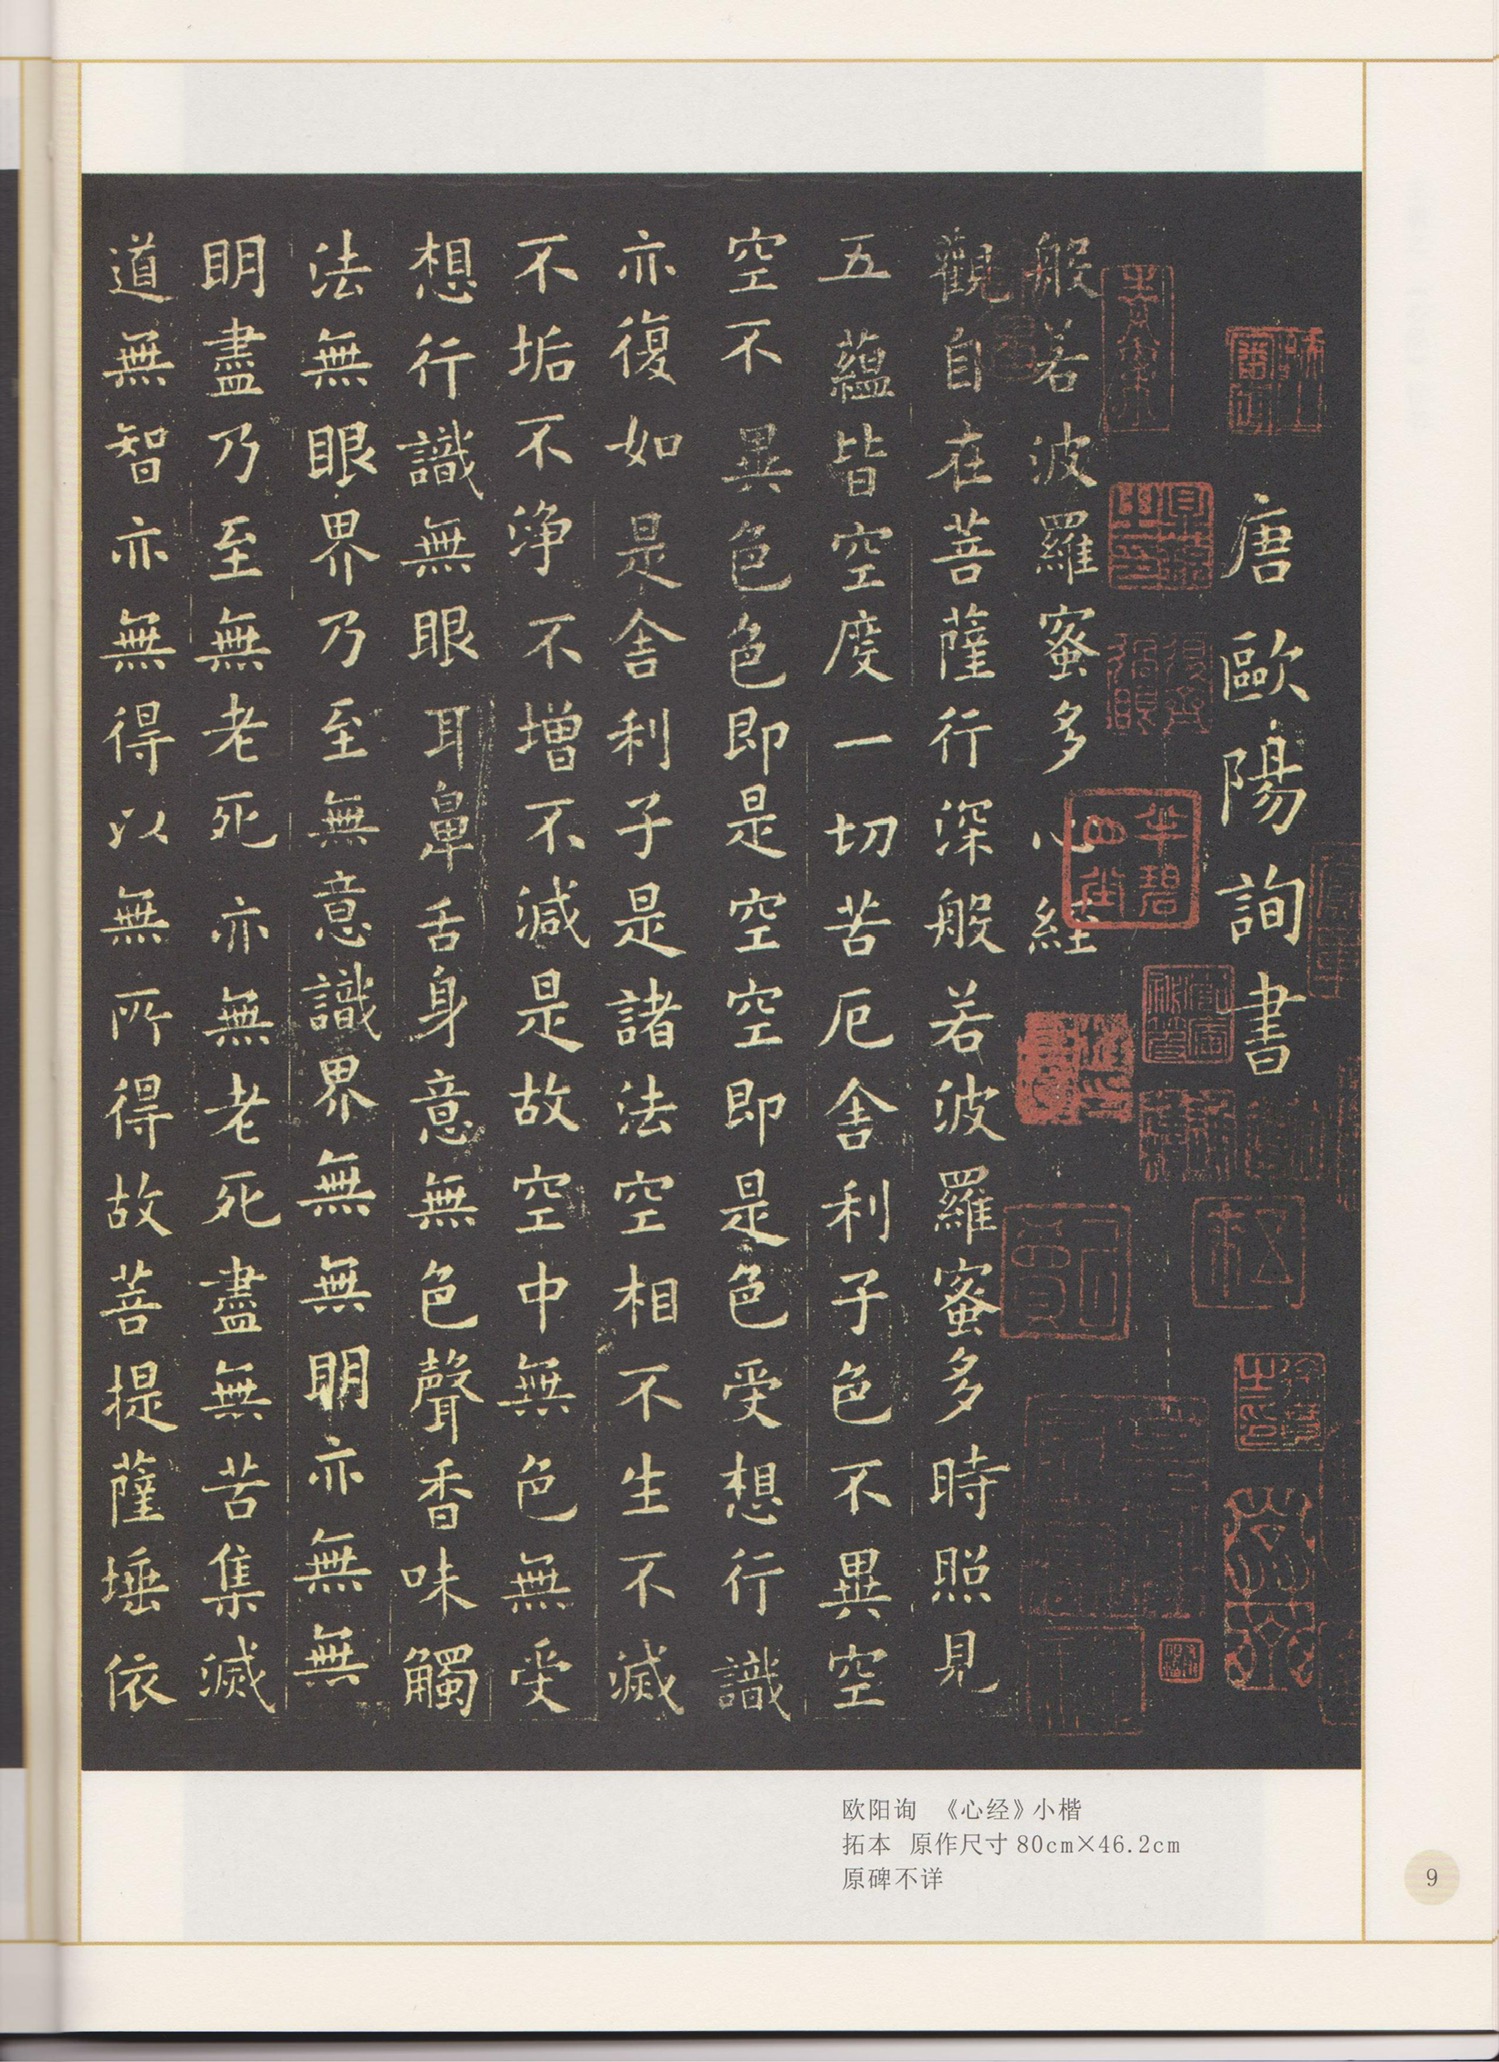 唐歐陽詢書
般若波羅蜜多心經
觀自在菩薩行深般若波羅蜜多時照見
五蘊皆空度一切苦厄舍利子色不異空
空不異色色即是空空即是色受想行識
亦復如是舍利子是諸法空相不生不滅
不垢不淨不增不減是故空中無色無受
想行識無眼耳鼻舌身意無色聲香味觸
法無眼界乃至無意識界無無明亦無無
明盡乃至無老死亦無老死盡無苦集滅
道無智亦無得以無所得故菩提薩埵依
欧阳询 《心经》小楷
拓本 原作尺寸80cm×46.2cm
原碑不详
9